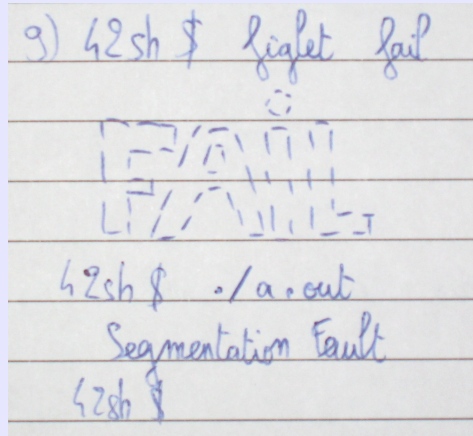 9) 42sh $ figlet fail
FAIL
42sh $ ./a.out
Segmentation Fault
42sh $